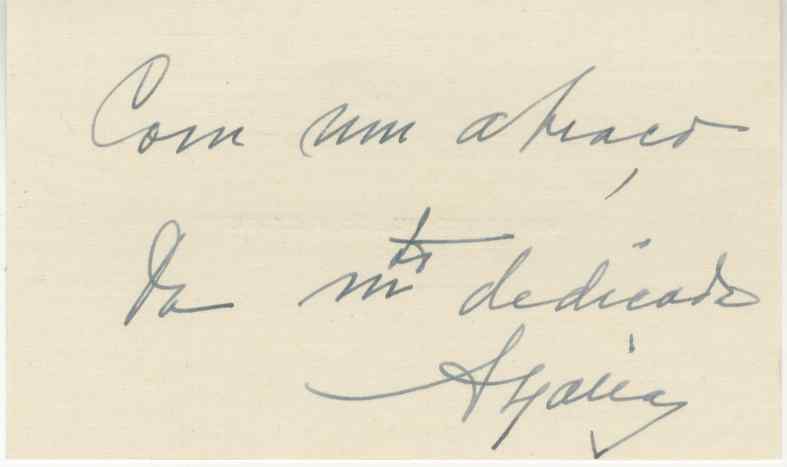 Com um abraço
Da mto dedicada